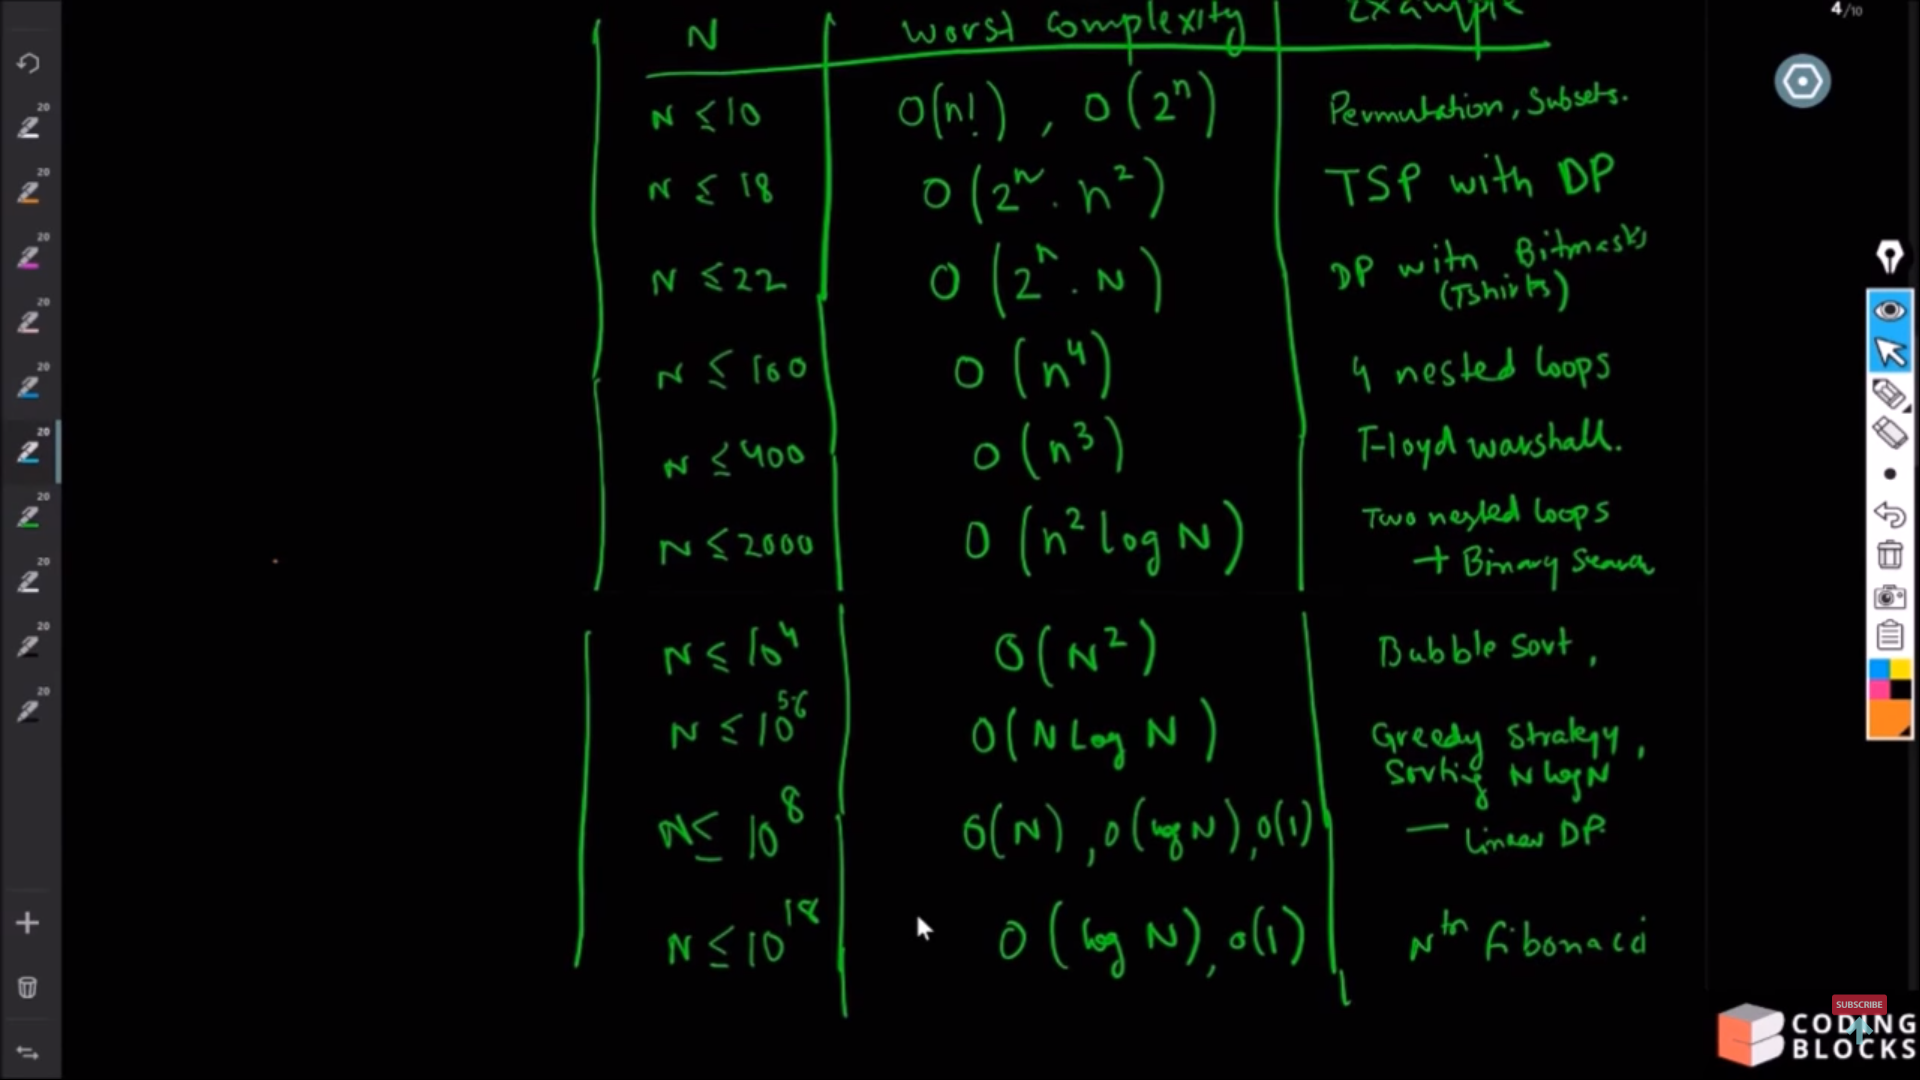 4/10
N worst complexity Example
N ≤ 10 O(n!) , O(2^n) Permutation, Subsets.
N ≤ 18 O(2^n . n^2) TSP with DP
N ≤ 22 O(2^n . N) DP with Bitmasks
(Tshirts)
N ≤ 100 O(n^4) 4 nested loops
N ≤ 400 O(n^3) Floyd warshall.
N ≤ 2000 O(n^2 log N) Two nested loops
+ Binary Search
N ≤ 10^4 O(N^2) Bubble Sort,
N ≤ 10^5-6 O(N Log N) Greedy Strategy,
Sorting N log N
N ≤ 10^8 O(N), O(log N), O(1) — Linear DP.
N ≤ 10^18 O(log N), O(1) Nth fibonacci
20
20
20
20
20
20
20
20
20
20
SUBSCRIBE
CODING
BLOCKS